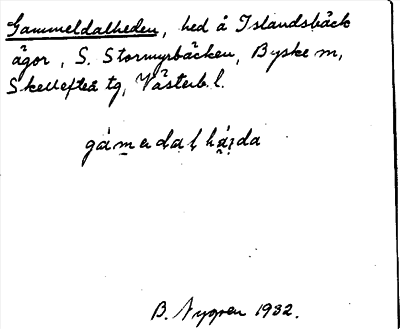 Gammeldalheden, hed å Islandsbäck
ägor, S. Stormyrbäcken, Byske m,
Skellefteå tg, Västerb. l.
B. Nygren 1932.